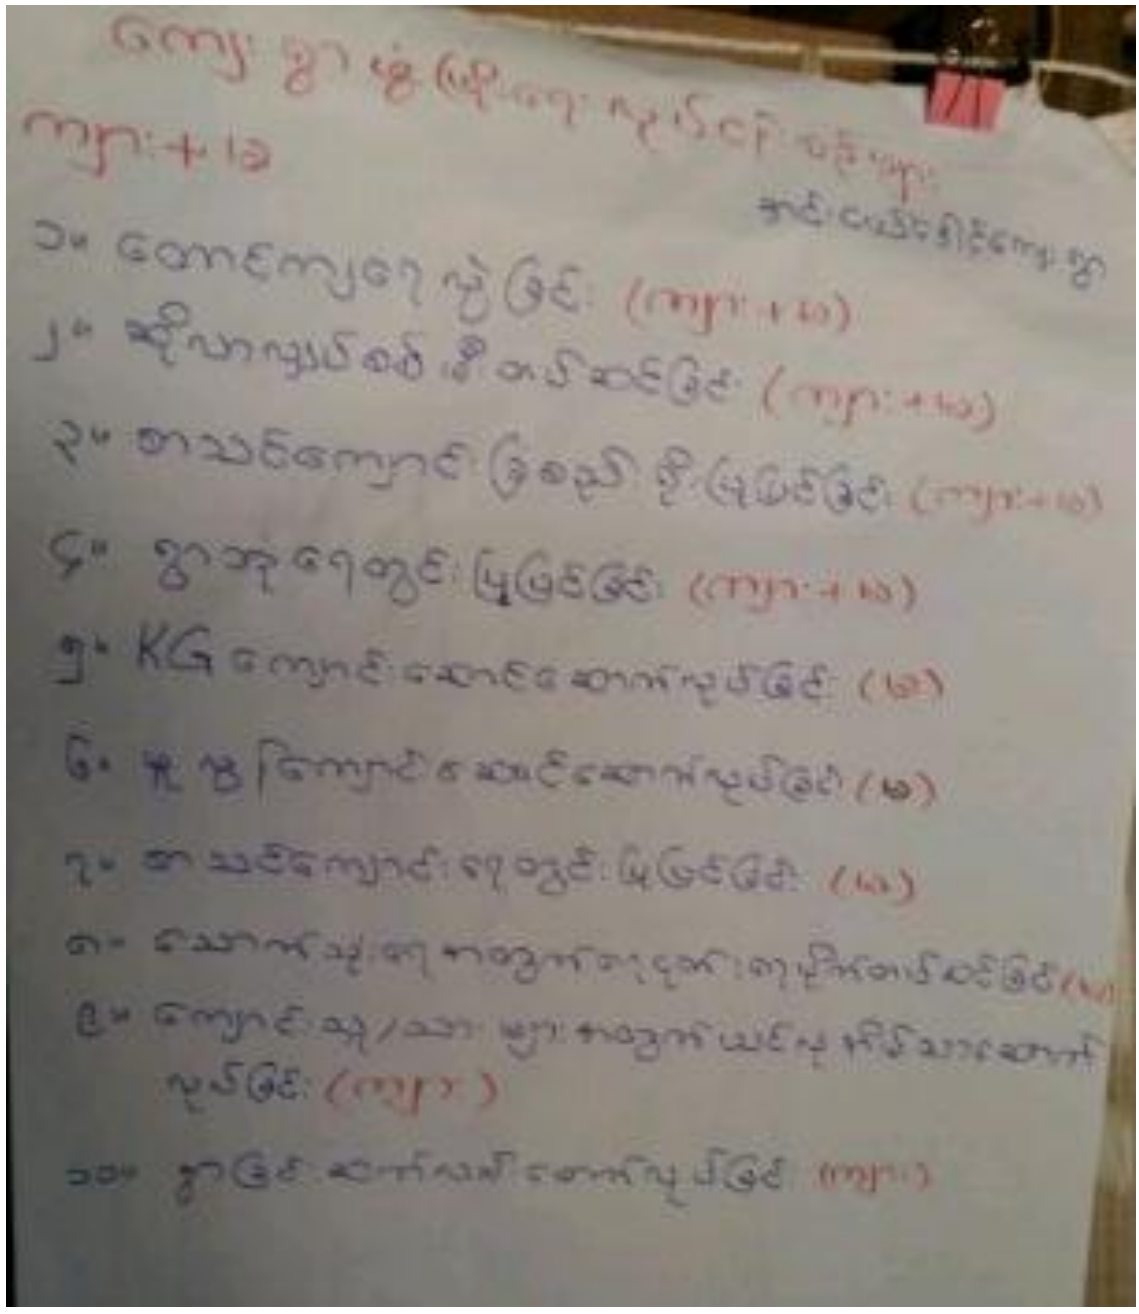 ကျေးရွာဖွံ့ဖြိုးရေးလုပ်ငန်းစဉ်များ
ကျား+မ
ကျေးရွာ
၁။ တောင်ကျရေသွယ်ခြင်း (ကျား+မ)
၂။ ဆိုလာလျှပ်စစ်မီးတပ်ဆင်ခြင်း (ကျား+မ)
၃။ စာသင်ကျောင်းခြံစည်းရိုးပြုပြင်ခြင်း (ကျား+မ)
၄။ ရွာသုံးရေတွင်းပြုပြင်ခြင်း (ကျား+မ)
၅။ KG ကျောင်းဆောင်ဆောက်လုပ်ခြင်း (မ)
၆။ မူလွန်ကျောင်းဆောင်ဆောက်လုပ်ခြင်း (မ)
၇။ စာသင်ကျောင်းရေတွင်းပြုပြင်ခြင်း (မ)
၈။ သောက်သုံးရေအတွက် တပ်ဆင်ခြင်း (မ)
၉။ ကျောင်းသူ/သားများအတွက်ယင်လုံအိမ်သာဆောက်
လုပ်ခြင်း (ကျား)
၁၀။ ရွာချင်းဆက်လမ်းဖောက်လုပ်ခြင်း (ကျား)